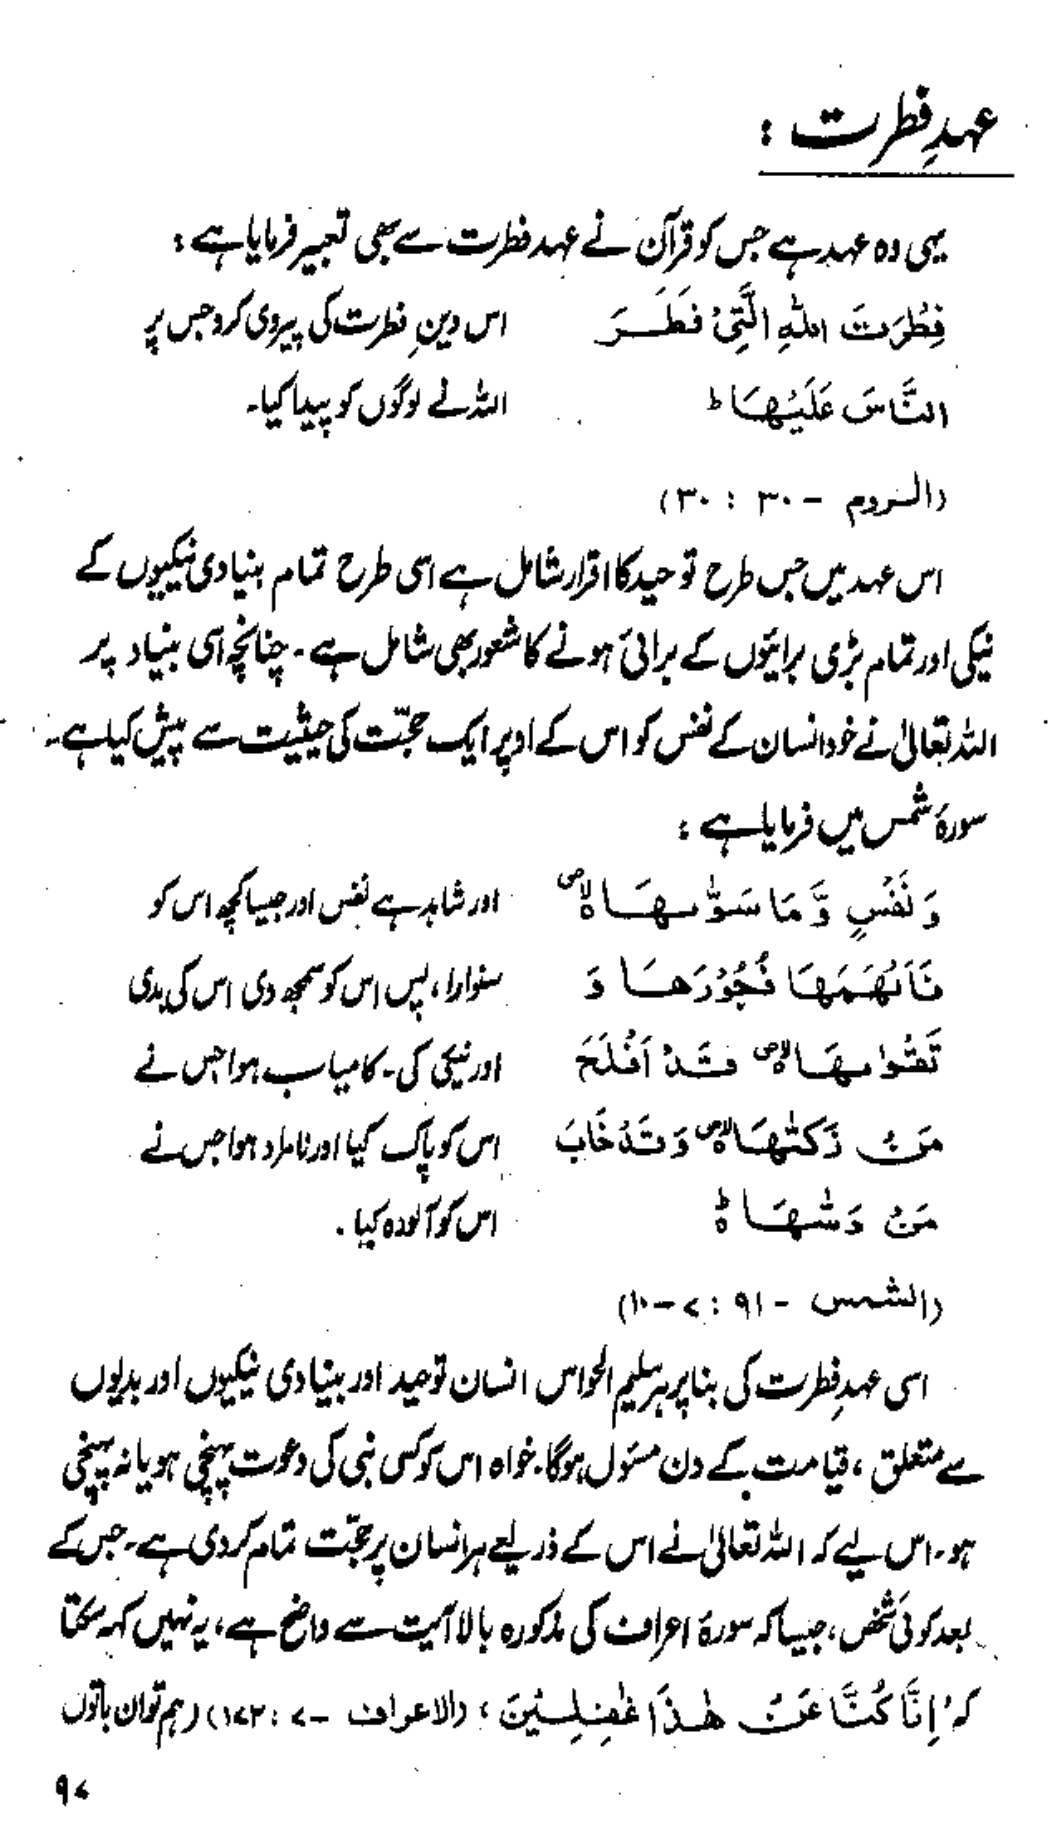 عہدِ فطرت :
یہی وہ عہد ہے جس کو قرآن نے عہد فطرت سے بھی تعبیر فرمایا ہے :
فِطْرَتَ اللّٰهِ الَّتِیْ فَطَرَ اس دینِ فطرت کی پیروی کرو جس پر
النَّاسَ عَلَیْهَا ط اللہ نے لوگوں کو پیدا کیا۔
(الروم - ۳۰ : ۳۰)
اس عہد میں جس طرح توحید کا اقرار شامل ہے اسی طرح تمام بنیادی نیکیوں کے
نیکی اور تمام بڑی برائیوں کے برائی ہونے کا شعور بھی شامل ہے۔ چنانچہ اسی بنیاد پر
اللہ تعالیٰ نے خود انسان کے نفس کو اس کے اوپر ایک حجّت کی حیثیت سے پیش کیا ہے۔
سورۂ شمس میں فرمایا ہے :
وَ نَفْسٍ وَّ مَا سَوّٰىهَا ۪ۙ اور شاہد ہے نفس اور جیسا کچھ اس کو
فَاَلْهَمَهَا فُجُوْرَهَا وَ سنوارا، پس اس کو سمجھ دی اس کی بدی
تَقْوٰىهَا ۪ۙ قَدْ اَفْلَحَ اور نیکی کی۔ کامیاب ہوا جس نے
مَنْ زَكّٰىهَا ۪ۙ وَ قَدْ خَابَ اس کو پاک کیا اور نامراد ہوا جس نے
مَنْ دَسّٰىهَا ؕ اس کو آلودہ کیا۔
(الشمس - ۹۱ : ۷-۱۰)
اسی عہدِ فطرت کی بنا پر ہر سلیم الحواس انسان توحید اور بنیادی نیکیوں اور بدیوں
سے متعلق، قیامت کے دن مسئول ہوگا۔ خواہ اس کو کسی نبی کی دعوت پہنچی ہو یا نہ پہنچی
ہو۔ اس لیے کہ اللہ تعالیٰ نے اس کے ذریعے ہر انسان پر حجّت تمام کر دی ہے۔ جس کے
بعد کوئی شخص، جیسا کہ سورۂ اعراف کی مذکورہ بالا آیت سے واضح ہے، یہ نہیں کہہ سکتا
کہ ’اِنَّا كُنَّا عَنْ هٰذَا غٰفِلِیْنَ‘ (الاعراف - ۷ : ۱۷۲) (ہم تو ان باتوں
۹۷